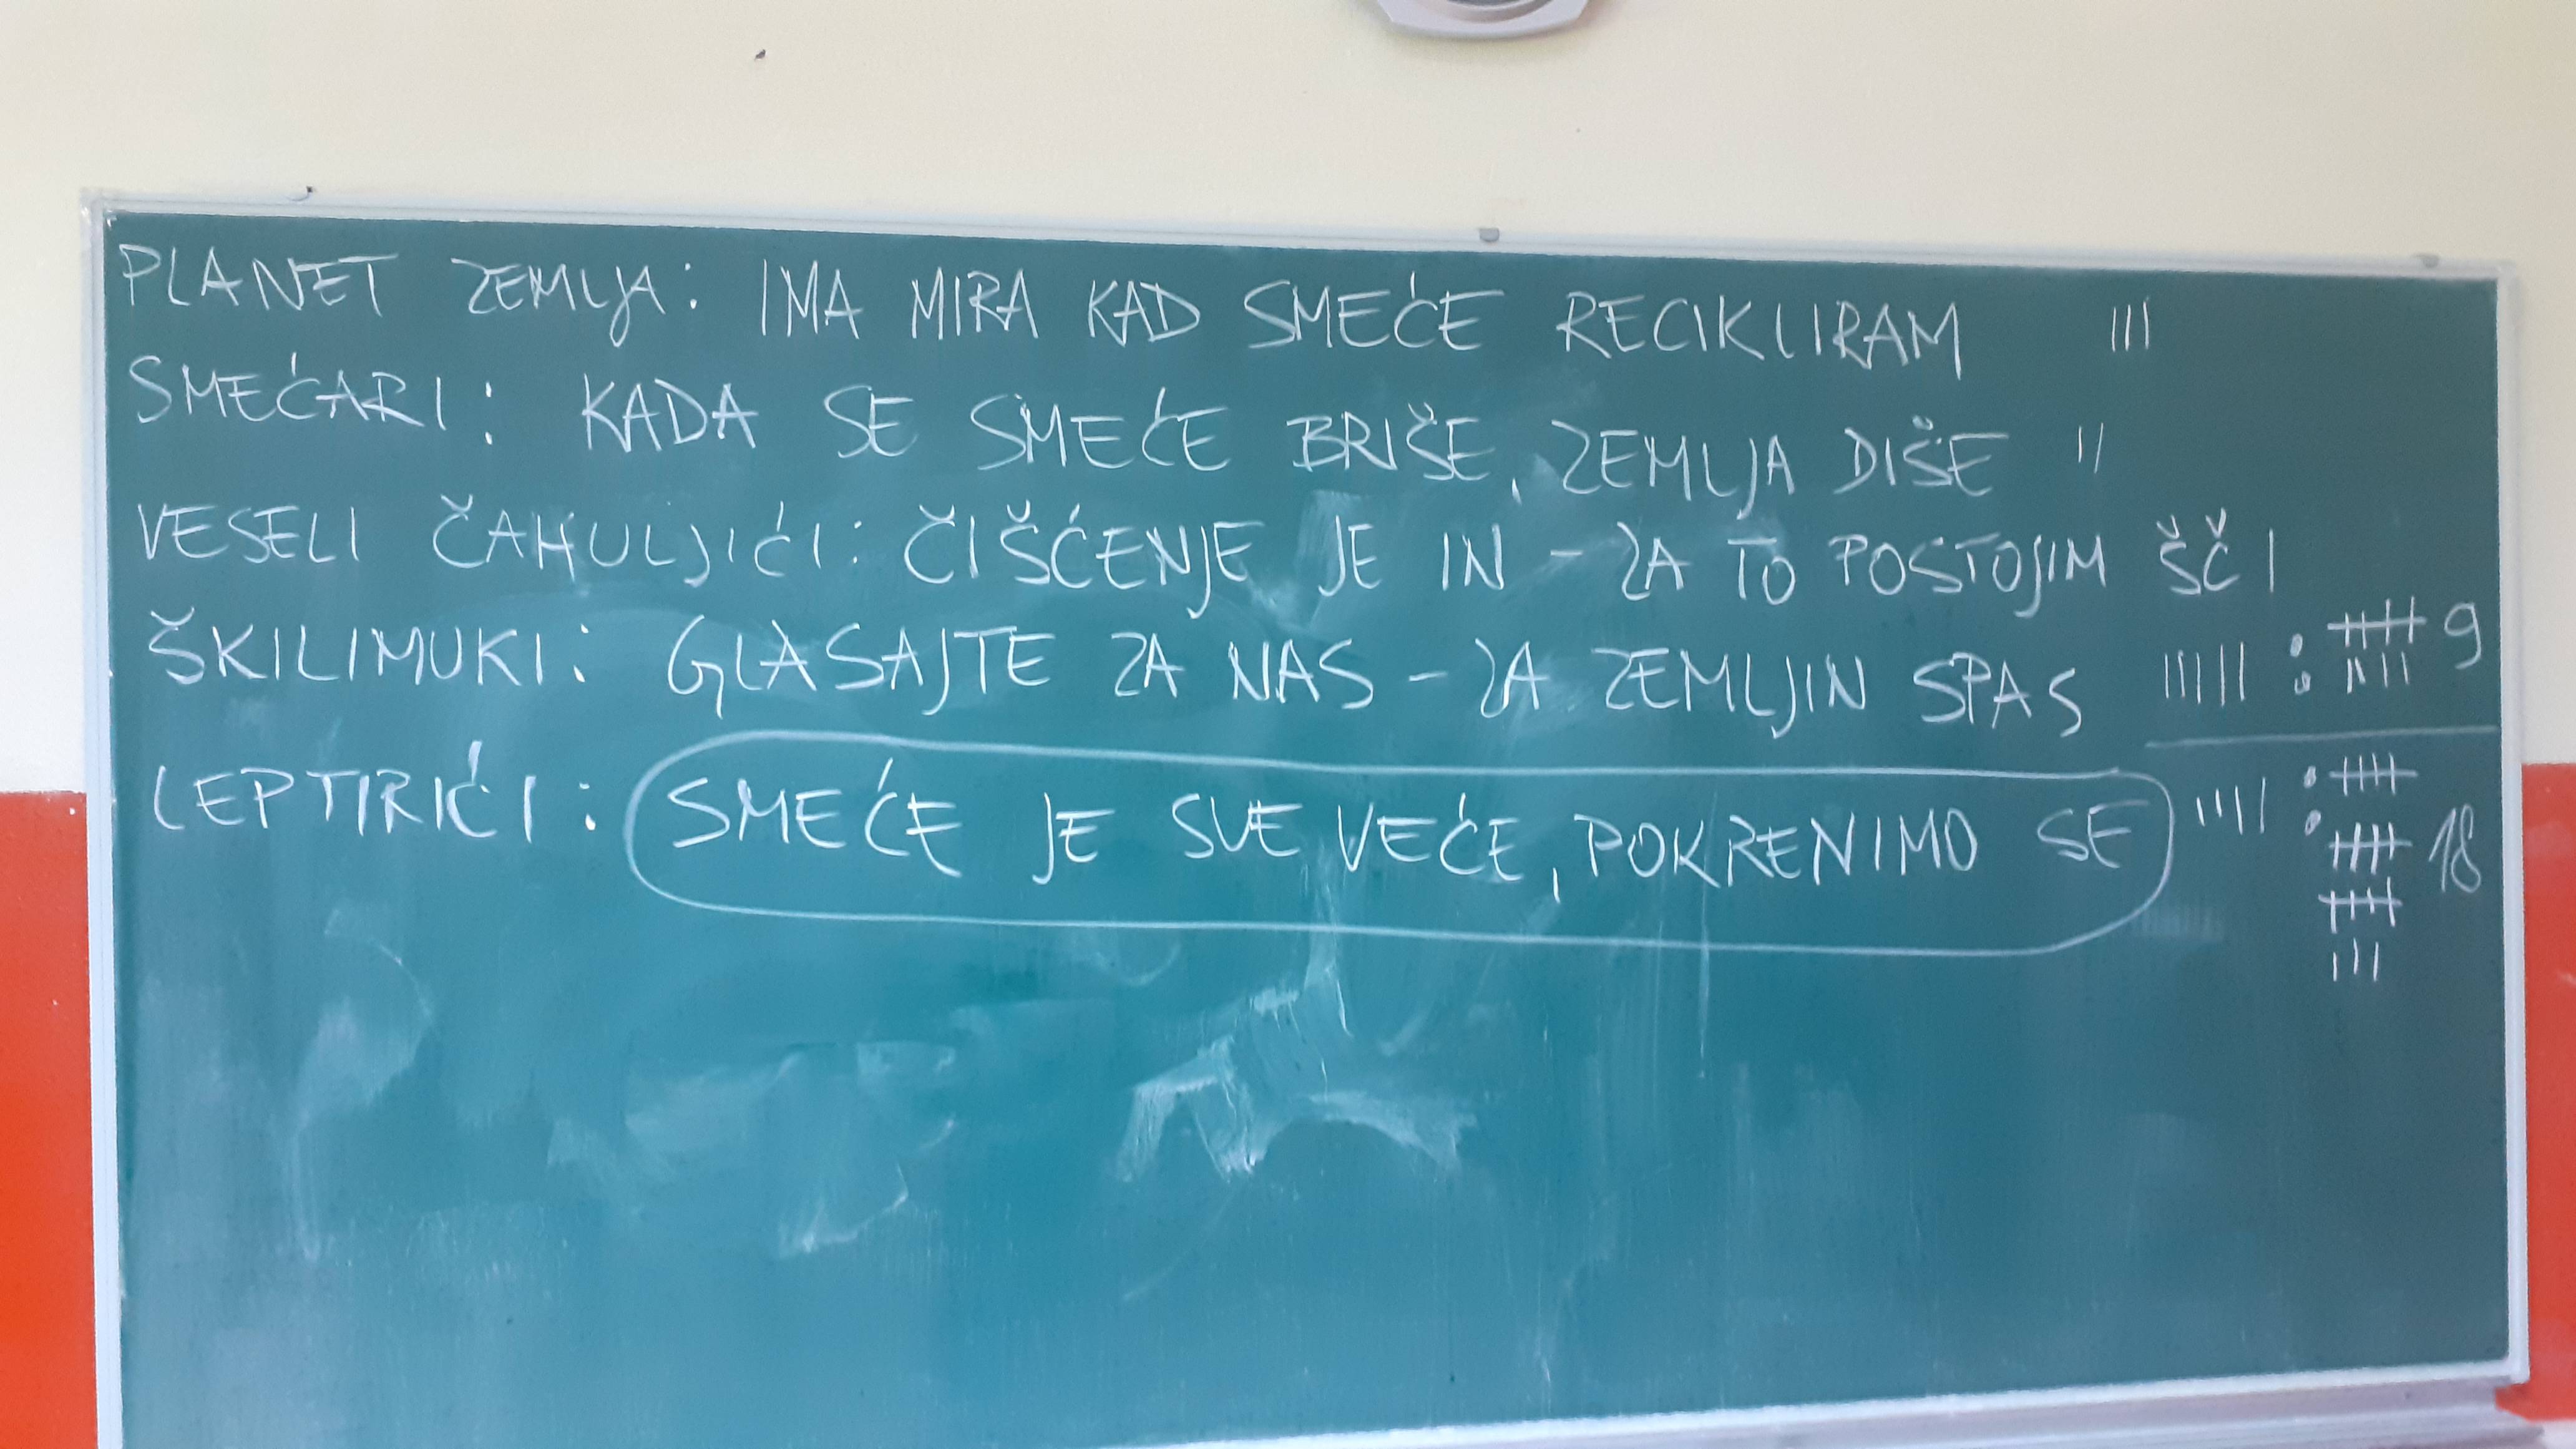 PLANET ZEMLJA: IMA MIRA KAD SMEĆE RECIKLIRAM III
SMEĆARI: KADA SE SMEĆE BRIŠE, ZEMLJA DIŠE II
VESELI ČAHULJIĆI: ČIŠĆENJE JE IN - ZA TO POSTOJIM ŠČ I
ŠKILIMUKI: GLASAJTE ZA NAS - ZA ZEMLJIN SPAS IIIII : 9
LEPTIRIĆI: SMEĆE JE SVE VEĆE, POKRENIMO SE IIII : 18